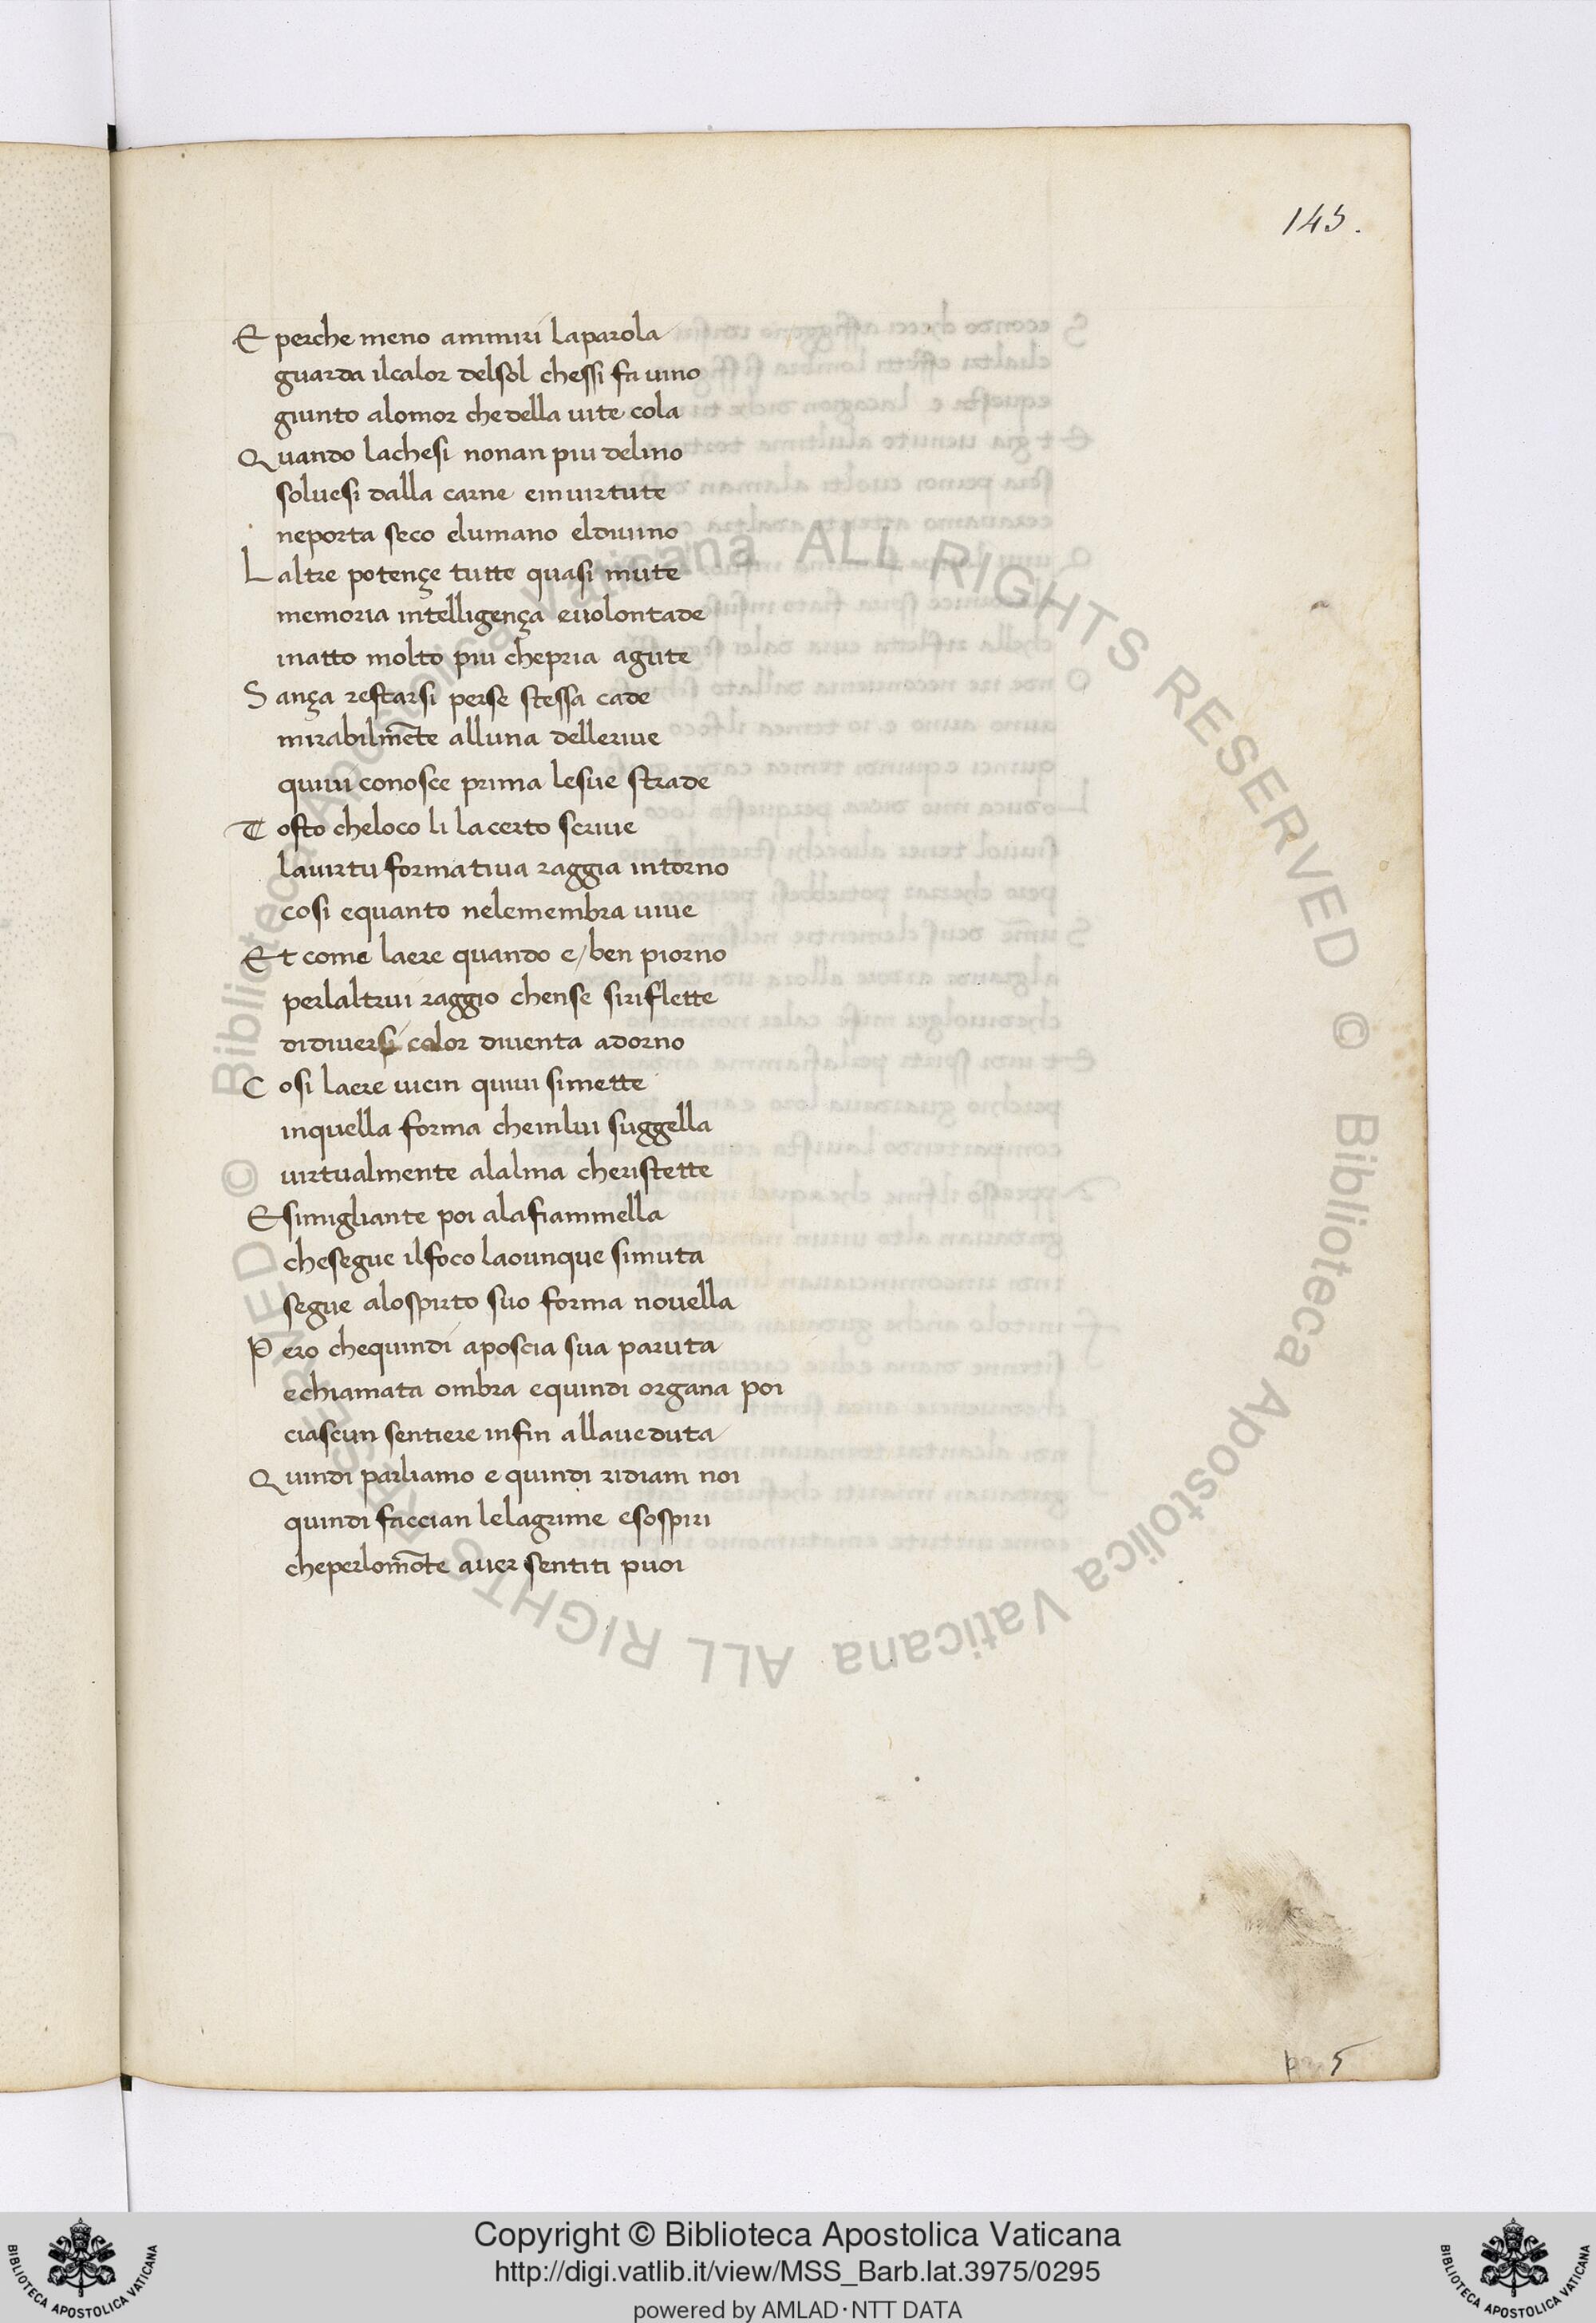 145.
E perche meno ammiri laparola
guarda ilcalor delsol chessi fa uino
giunto alomor chedella uite cola
Quando lachesi nonan piu delino
soluesi dalla carne einuirtute
neporta seco elumano eldiuino
Laltre potençe tutte quasi mute
memoria intelligença euolontade
inatto molto piu chepria agute
Sança restarsi perse stessa cade
mirabilm̄te alluna dellerive
quiui conosce prima lesue strade
Tosto cheloco li lacerto scriue
lauirtu formatiua raggia intorno
cosi equanto nelemembra uiue
Et come laere quando e/ ben piorno
perlaltrui raggio chense siriflette
didiuersi color diuenta adorno
Cosi laere uicin quiui simette
inquella forma cheinlui suggella
uirtualmente alalma cheristette
Esimigliante poi alafiammella
chesegue ilfoco laounque simuta
segue alospirto suo forma nouella
Pero chequindi aposcia sua paruta
echiamata ombra equindi organa poi
ciascun sentiere infin allaueduta
Quindi parliamo e quindi ridiam noi
quindi faccian lelagrime esospiri
cheperlom̄ōte auer sentiti puoi
5
© Biblioteca Apostolica Vaticana ALL RIGHTS RESERVED © Biblioteca Apostolica Vaticana ALL RIGHTS RESERVED
Copyright © Biblioteca Apostolica Vaticana
http://digi.vatlib.it/view/MSS_Barb.lat.3975/0295
powered by AMLAD·NTT DATA
BIBLIOTECA APOSTOLICA VATICANA
BIBLIOTECA APOSTOLICA VATICANA